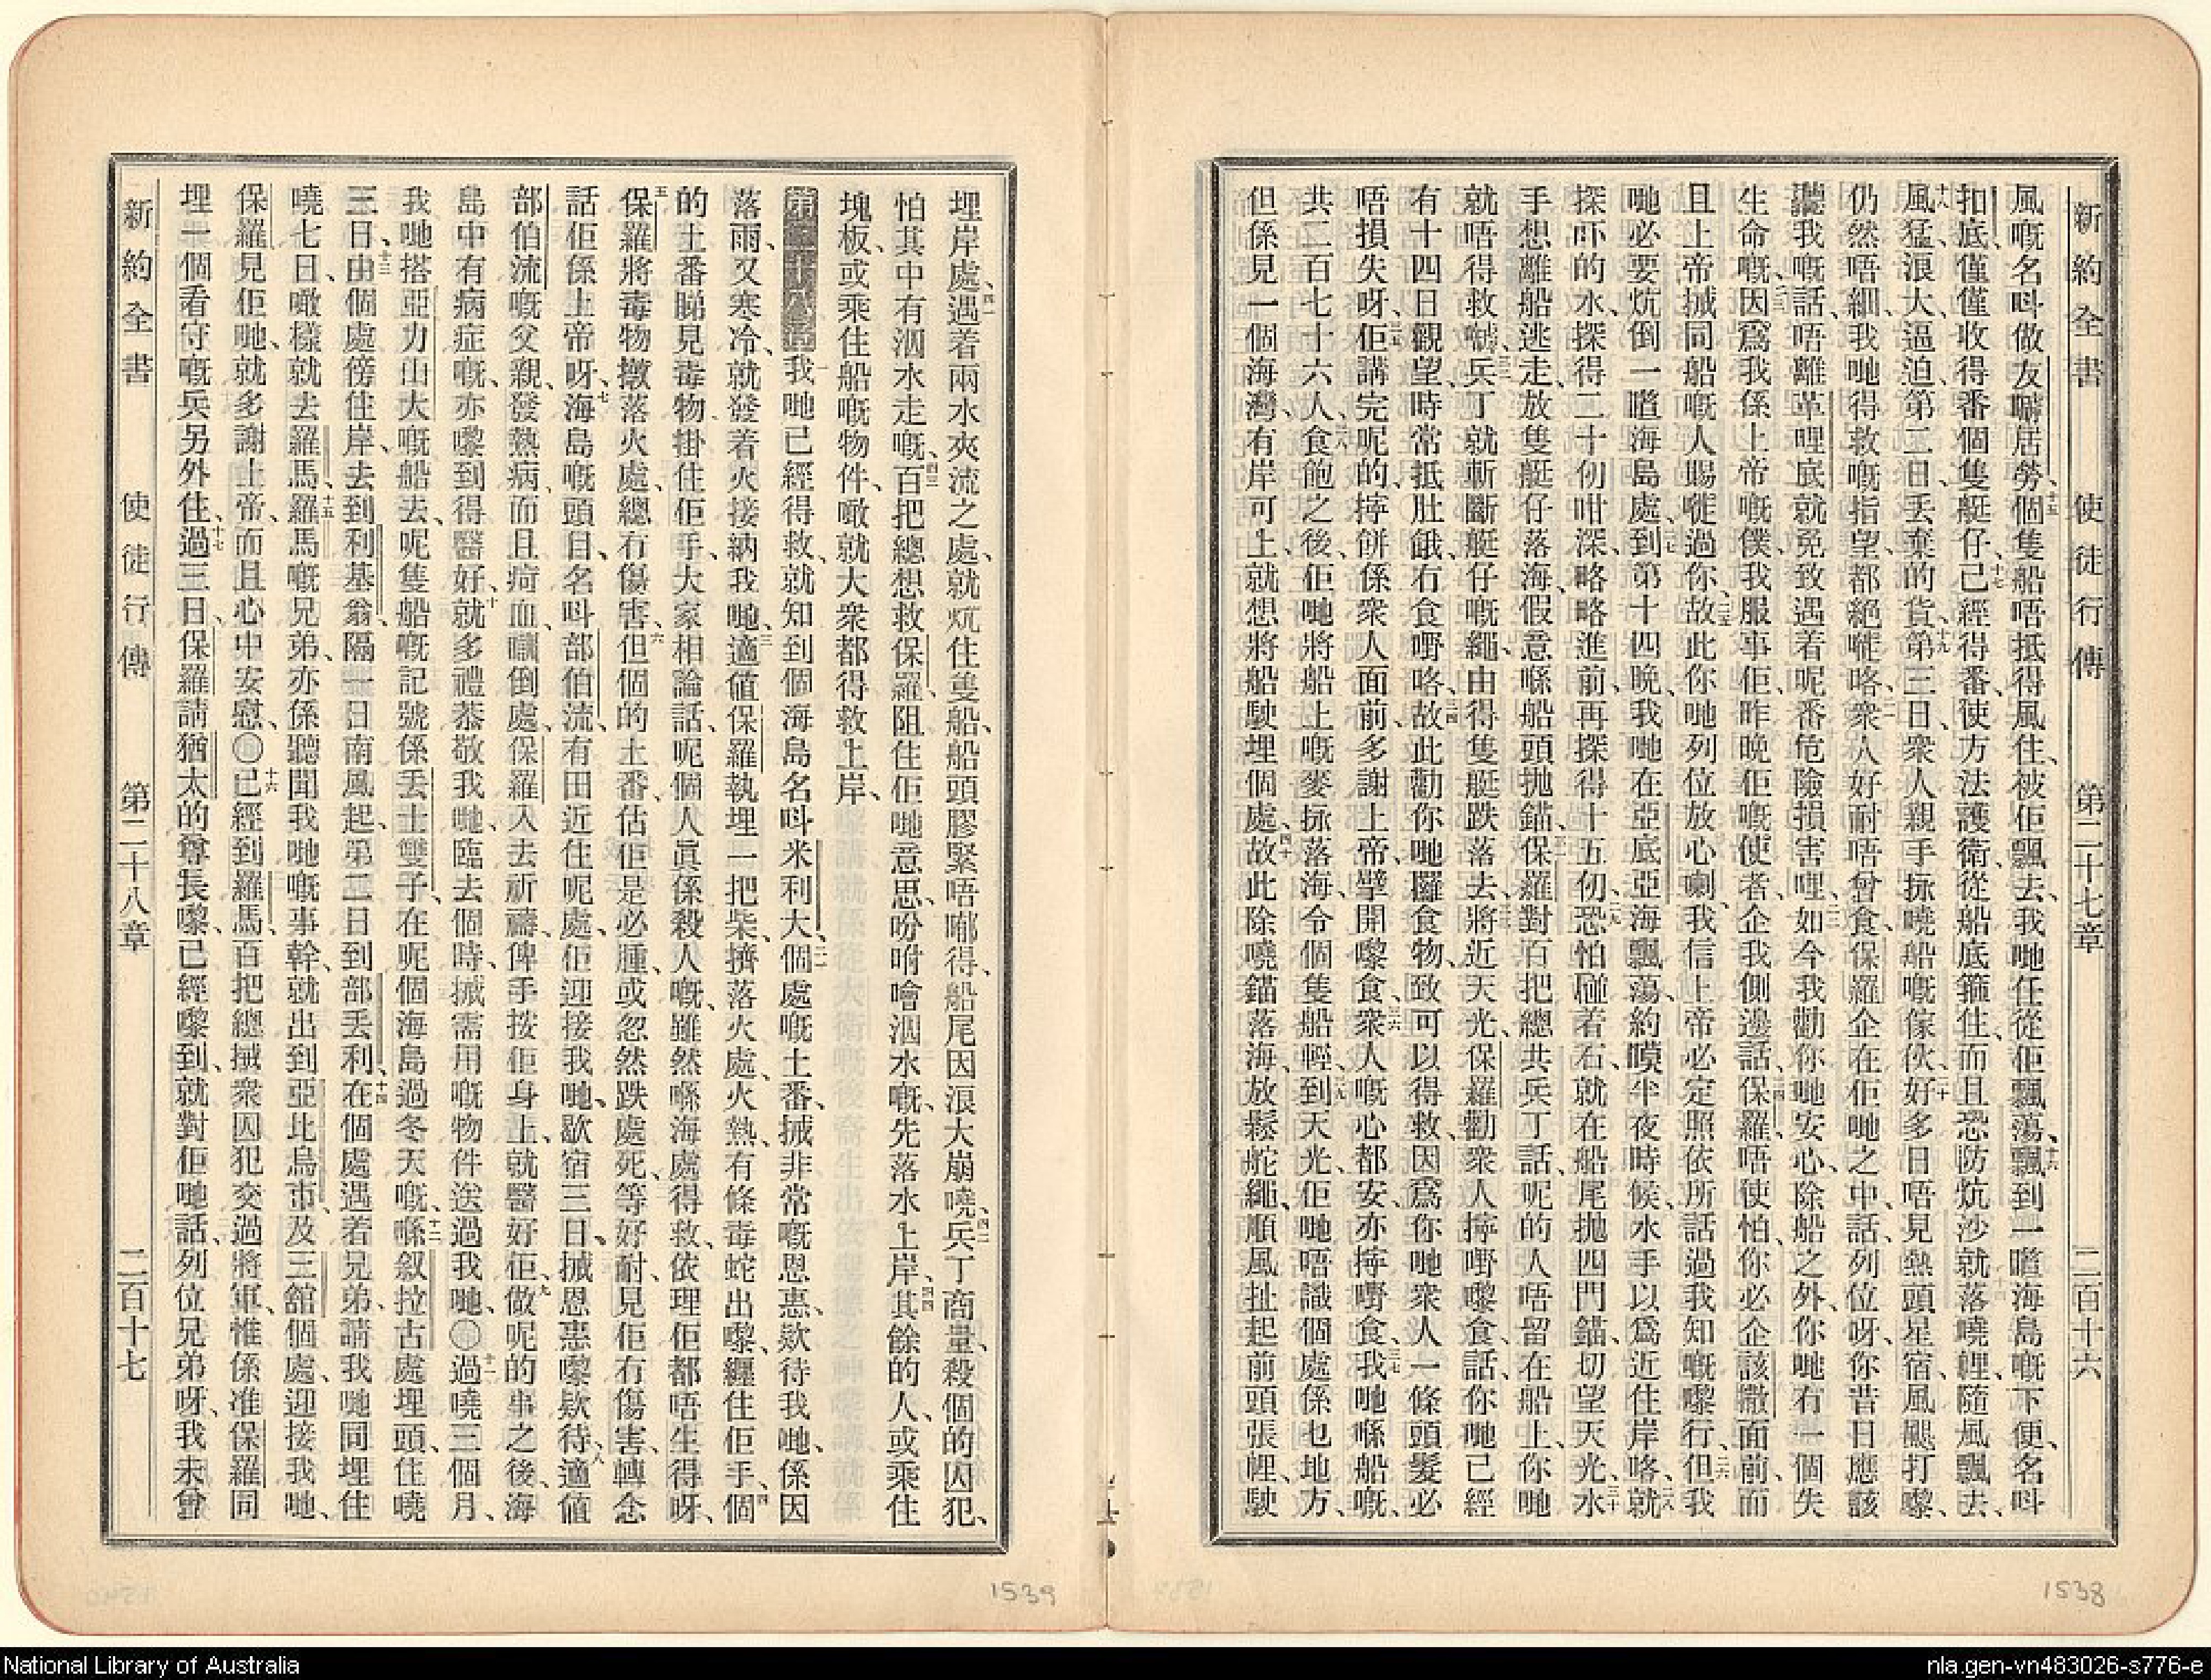 新約全書　使徒行傳　第二十七章　二百十六
風嘅名呌做友囉居勞、十五個隻船唔抵得風住、被佢飄去、我哋任從佢飄蕩、十六飄到一嚿海島嘅下便、名呌
扣底、僅僅收得番個隻艇仔、十七已經得番、使方法護衛、從船底箍住、而且恐防炕沙、就落嘵𢃇、隨風飄去、
十八風猛浪大、逼迫、第二日、丢棄的貨、十九第三日、衆人親手拯嘵船嘅傢伙、二十好多日唔見熱頭星宿、風颶打嚟、
仍然唔細、我哋得救嘅指望、都絕嘥咯、二一衆人好耐唔曾食、保羅企在佢哋之中、話、列位呀、你昔日應該
聽我嘅話、唔離革哩底、就免致遇着呢番危險損害哩、二二如今我勸你哋安心、除船之外、你哋冇一個失
生命嘅、二三因爲我係上帝嘅僕、我服事佢、昨晚佢嘅使者、企我側邊話、二四保羅、唔使怕、你必企該撒面前、而
且上帝搣同船嘅人賜嘥過你、二五故此你哋列位放心喇、我信上帝必定照依所話過我知嘅嚟行、二六但我
哋必要炕倒一嚿海島處、二七到第十四晚、我哋在亞底亞海飄蕩、約嗼半夜時候、水手以爲近住岸咯、二八就
探吓的水、探得二十仞咁深、略略進前、再探得十五仞、二九恐怕砸着石、就在船尾抛四門錨、切望天光、三十水
手想離船逃走、放隻艇仔落海、假意喺船頭抛錨、三一保羅對百把總共兵丁話、呢的人唔留在船上、你哋
就唔得救喊、三二兵丁就斬斷艇仔嘅繩、由得隻艇跌落去、三三將近天光、保羅勸衆人擰嘢嚟食、話、你哋已經
有十四日觀望、時常抵肚餓、冇食嘢咯、三四故此勸你哋攞食物、致可以得救、因爲你哋衆人一條頭髮必
唔損失呀、三五佢講完呢的、擰餅係衆人面前、多謝上帝、擘開嚟食、三六衆人嘅心都安、亦擰嘢食、三七我哋喺船嘅、
共二百七十六人、三八食飽之後、佢哋將船上嘅麥拯落海、令個隻船輕、三九到天光、佢哋唔識個處係乜地方、
但係見一個海灣、有岸可上、就想將船駛埋個處、四十故此除嘵錨落海、放鬆舵繩、順風扯起前頭張𢃇、駛
埋岸處、四一遇着兩水夾流之處、就炕住隻船、船頭膠緊唔嘟得、船尾因浪大崩嘵、四二兵丁商量、殺個的囚犯、
怕其中有泅水走嘅、四三百把總想救保羅、阻住佢哋意思、吩咐噲泅水嘅、先落水上岸、四四其餘的人、或乘住
塊板、或乘住船嘅物件、噉就大衆都得救上岸、
第二十八章　一我哋已經得救、就知到個海島名呌米利大、二個處嘅土番、搣非常嘅恩惠、欵待我哋、係因
落雨、又寒冷、就發着火接納我哋、三適値保羅執埋一把柴、擠落火處、火熱、有條毒蛇出嚟、纒住佢手、四個
的土番睇見毒物掛住佢手、大家相論話、呢個人眞係殺人嘅、雖然喺海處得救、依理佢都唔生得呀、
五保羅將毒物撴落火處、總冇傷害、六但個的土番、估佢是必腫、或忽然跌處死、等好耐、見佢冇傷害、轉念
話佢係上帝呀、七海島嘅頭目、名呌部伯流、有田近住呢處、佢迎接我哋、歇宿三日、搣恩惠嚟欵待、八適値
部伯流嘅父親、發熱病、而且疴血、瞓倒處、保羅入去祈禱、俾手按佢身上、就醫好佢、九做呢的事之後、海
島中有病症嘅、亦嚟到得醫好、十就多禮恭敬我哋、臨去個時、搣需用嘅物件送過我哋、○十一過嘵三個月、
我哋搭亞力山大嘅船去、呢隻船嘅記號係丢士雙子、在呢個海島過冬天嘅、十二喺叙拉古處埋頭、住嘵
三日、十三由個處傍住岸、去到利基翁、隔一日南風起、第二日到部丢利、十四在個處遇着兄弟、請我哋同埋住
嘵七日、噉樣就去羅馬、十五羅馬嘅兄弟、亦係聽聞我哋嘅事幹、就出到亞比烏市、及三舘個處、迎接我哋、
保羅見佢哋、就多謝上帝、而且心中安慰、○十六已經到羅馬、百把總搣衆囚犯交過將軍、惟係准保羅同
埋一個看守嘅兵另外住、十七過三日、保羅請猶太的尊長嚟、已經嚟到、就對佢哋話、列位兄弟呀、我未曾
新約全書　使徒行傳　第二十八章　二百十七
1539
1538
National Library of Australia
nla.gen-vn483026-s776-e